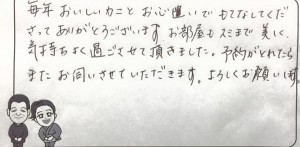 毎年おいしいカニとお心遣いでもてなしてくだ
さってありがとうございます。お部屋もスミまで美しく、
気持ちよく過ごさせて頂きました。予約がとれたら
またお伺いさせていただきます。よろしくお願いします。